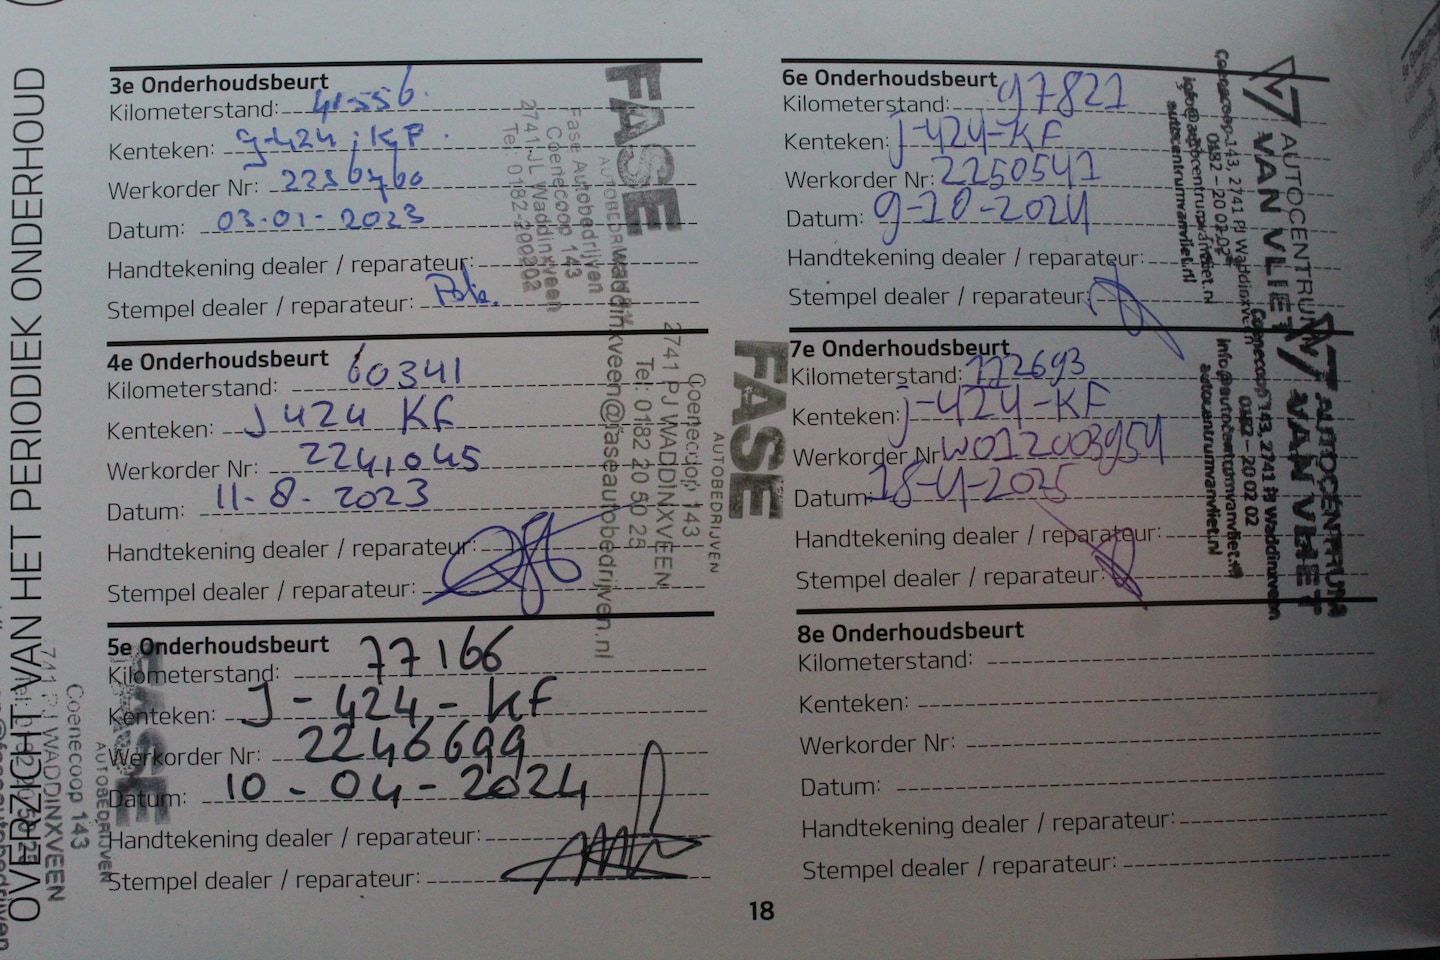 OVERZICHT VAN HET PERIODIEK ONDERHOUD
3e Onderhoudsbeurt
Kilometerstand: 41.556.
Kenteken: J-424-KF.
Werkorder Nr:
Datum: 03-01-2023
Handtekening dealer / reparateur:
Stempel dealer / reparateur:
FASE
AUTOBEDRIJVEN
Fase Autobedrijven
Coenecoop 143
2741 JL Waddinxveen
Tel: 0182-200202
4e Onderhoudsbeurt
Kilometerstand: 60341
Kenteken: J 424 KF
Werkorder Nr: 2241045
Datum: 11-8-2023
Handtekening dealer / reparateur:
Stempel dealer / reparateur:
FASE
AUTOBEDRIJVEN
Coenecoop 143
2741 PJ WADDINXVEEN
Tel: 0182 20 50 25
waddinxveen@faseautobedrijven.nl
5e Onderhoudsbeurt
Kilometerstand: 77166
Kenteken: J-424-KF
Werkorder Nr: 2246699
Datum: 10-04-2024
Handtekening dealer / reparateur:
Stempel dealer / reparateur:
FASE
AUTOBEDRIJVEN
Coenecoop 143
2741 PJ WADDINXVEEN
6e Onderhoudsbeurt
Kilometerstand: 97821
Kenteken: j-424-KF
Werkorder Nr: 2250541
Datum: 9-10-2024
Handtekening dealer / reparateur:
Stempel dealer / reparateur:
AUTOCENTRUM
VAN VLIET
Coenecoop 143, 2741 PJ Waddinxveen
0182 - 20 02 02
info@autocentrumvanvliet.nl
autocentrumvanvliet.nl
7e Onderhoudsbeurt
Kilometerstand: 112693
Kenteken: j-424-KF
Werkorder Nr: WO12003954
Datum: 18-4-2025
Handtekening dealer / reparateur:
Stempel dealer / reparateur:
AUTOCENTRUM
VAN VLIET
Coenecoop 143, 2741 PJ Waddinxveen
0182 - 20 02 02
info@autocentrumvanvliet.nl
autocentrumvanvliet.nl
8e Onderhoudsbeurt
Kilometerstand:
Kenteken:
Werkorder Nr:
Datum:
Handtekening dealer / reparateur:
Stempel dealer / reparateur:
18